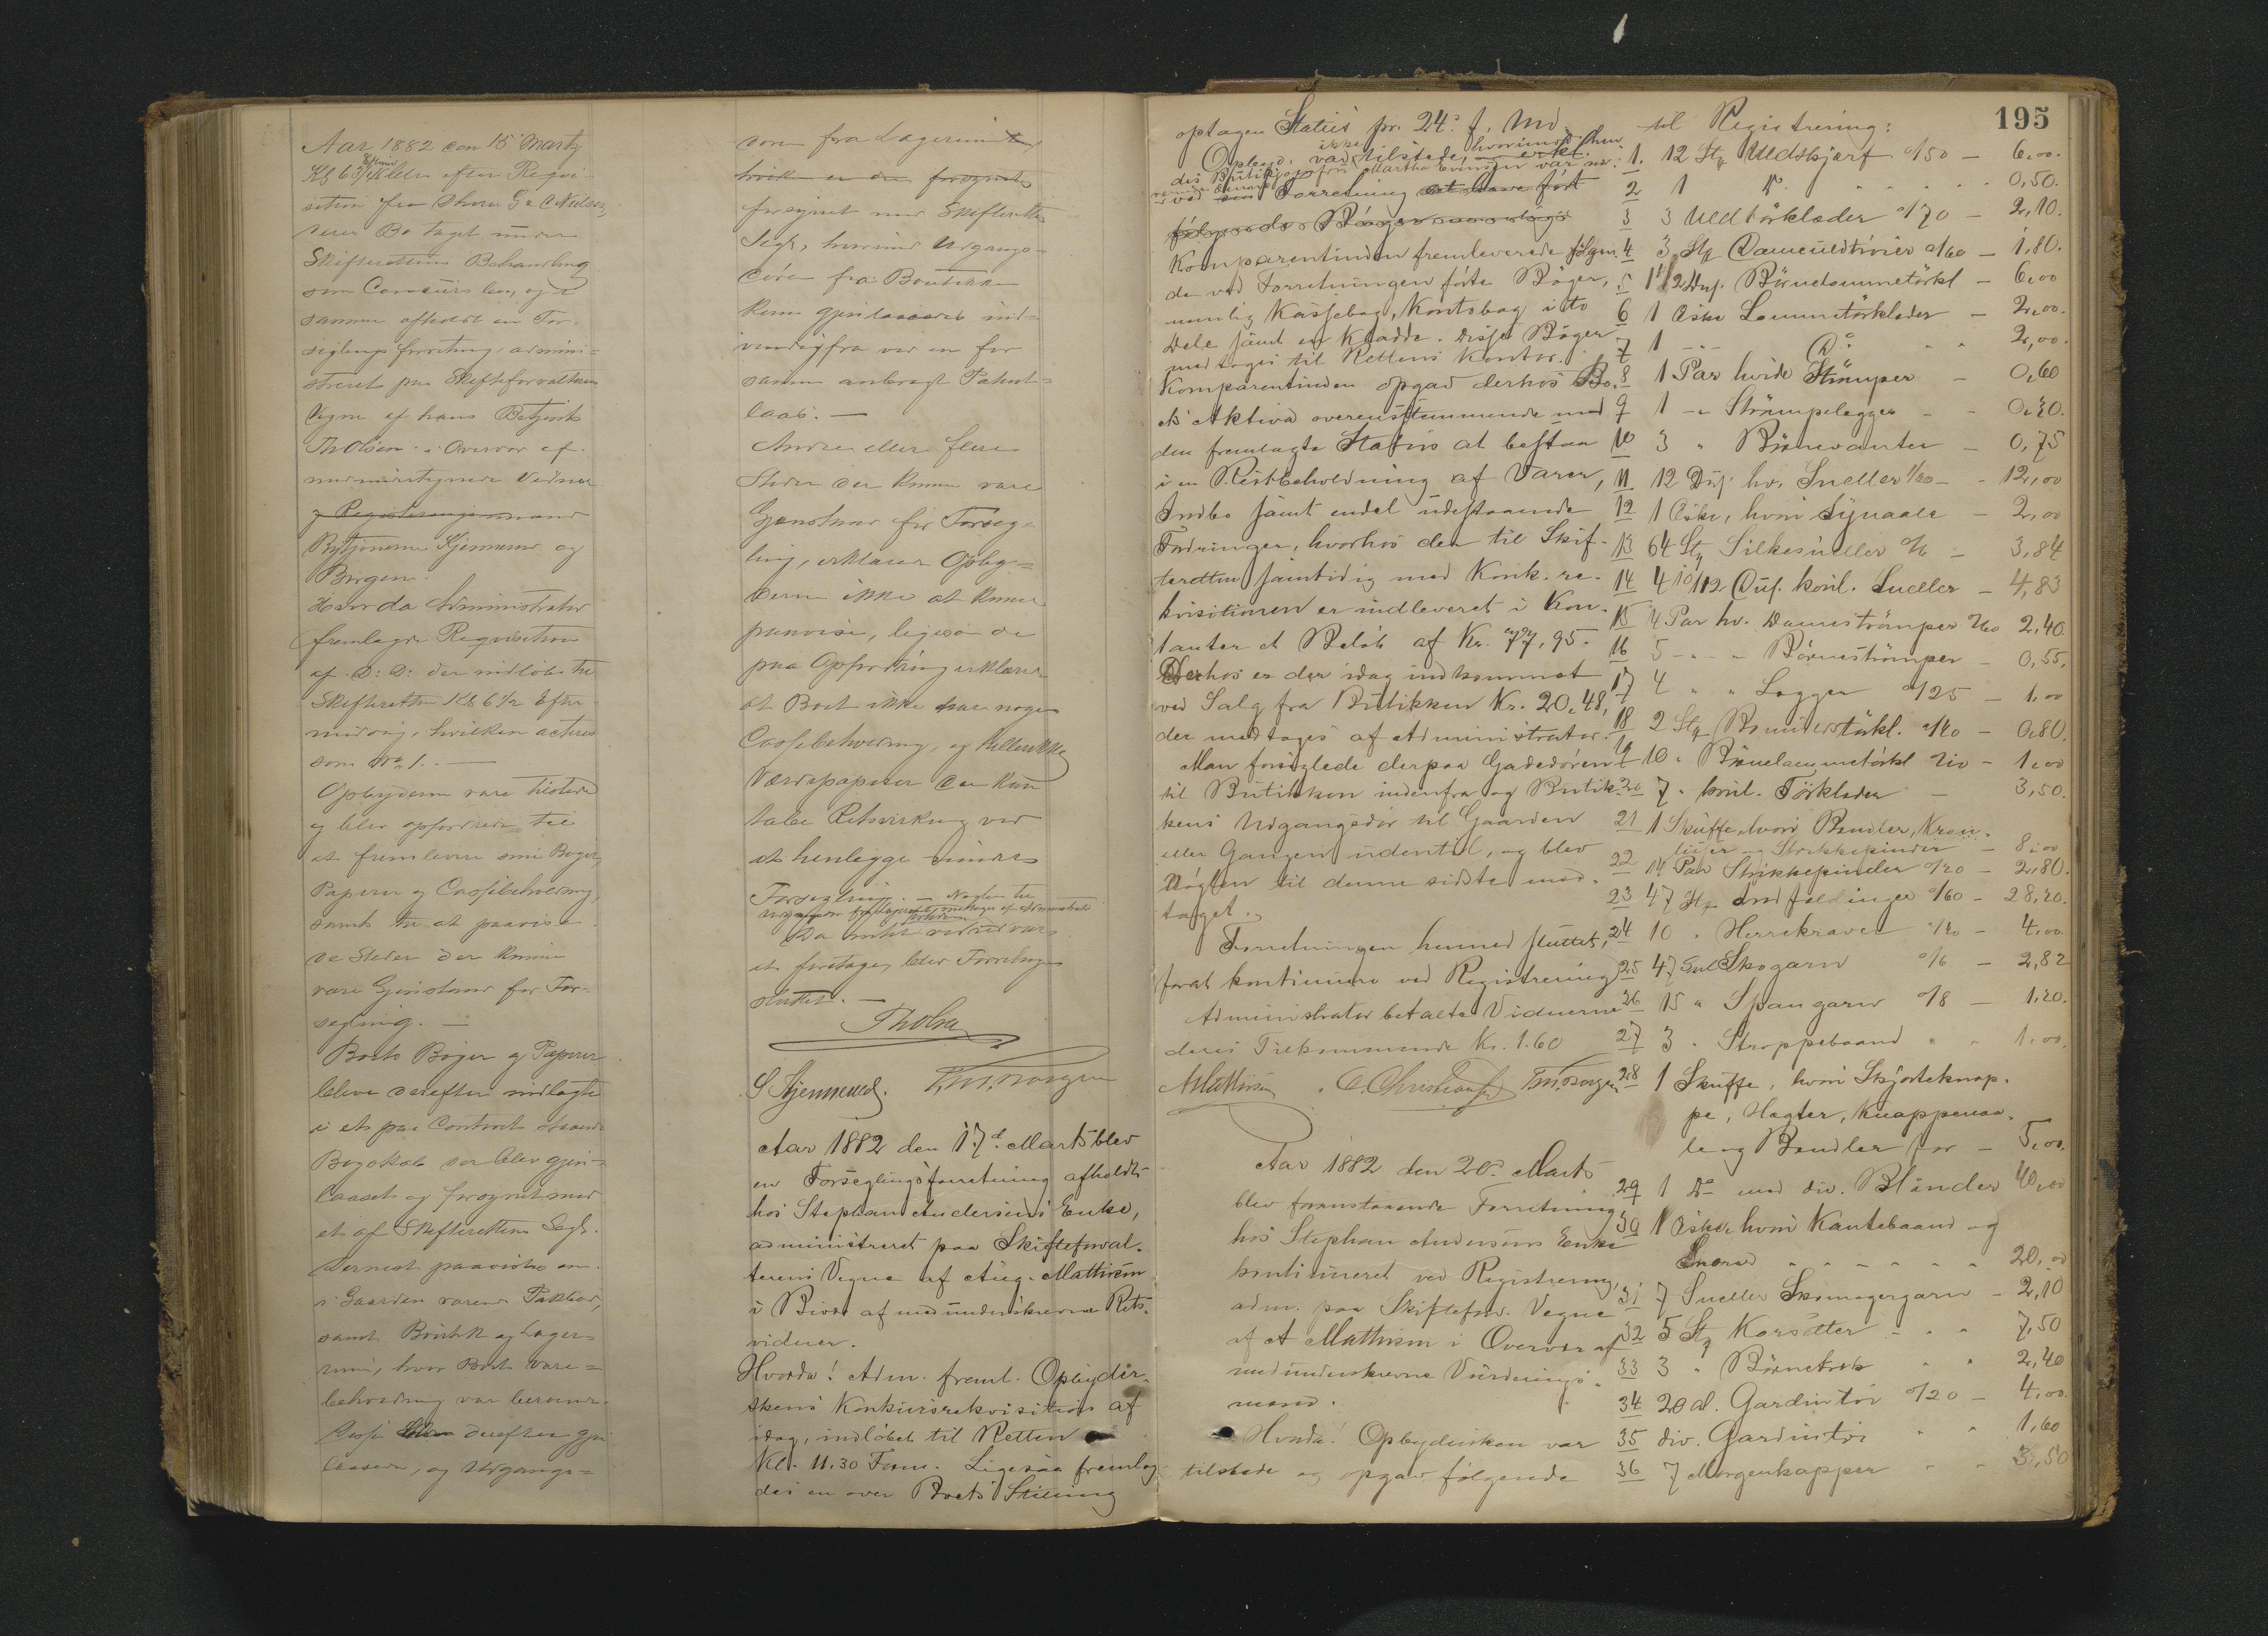 Aar 1882 den 15 Marts
Kl 6 3/4 Eftmid blev efter Reqvi-
sition fra
deres Bo taget under
Skifterettens Behandling
som Concursbo, og i
samme afholdt en For-
seglings forretning, admini-
streret paa Skifteforvalterens
Vegne af hans Betjent
Th Olsen i Overvær af
medundertegnede Vidner
og Registreringsmænd
Bytjenerne Kjennerud og
Borgen.
Hvorda Administrator
fremlagde Reqvisition
af D: D: der indløb til
Skifteretten Kl 6 1/2 Efter-
middag, hvilken acteres
som No 1. —
Opbyderne vare tilstede
og blev opfordrede til
at fremlevere sine Bøger,
Papirer og Cassebeholdning,
samt til at paavise
de Steder der kunne
være Gjenstand for For-
segling. —
Boets Bøger og Papirer
bleve derefter indlagte
i et paa Contoret staaende
Bogskab der blev gjen-
laaset og forsynet med
et af Skifterettens Segl.
Dernæst paavistes en
i Gaarden værende Pakbod,
samt Boutik og Lager-
rum, hvor Boets Vare=
beholdning var beroende.
Disse bleve derefter gjen
laasede, og Udgangs=
døren fra Lagerrummet
hvilken er den forsynet
forsynet med Skifterettens
Segl, hvorimod Udgangs-
døren fra Boutikken
kun gjenlaasedes ind-
vendigfra ved en for
samme anbragt Patent-
laas. —
Andre eller flere
Steder der kunne være
Gjenstand for Forseg-
ling, erklærer Opby-
derne ikke at kunne
paavise, ligesom de
paa Opfordring erklærede
at Boet ikke havde nogen
Cassebeholdning, og heller ikke
Værdipapirer der kun
tabe Retsvirkning ved
at henligge under
Forsegling. — Nøglen til
Udgangsdøren medtoges af Administrator
Da intet videre var
at foretage, blev Forretningen
sluttet. —
Th Olsen
S. Kjennerud. T. M. Borgen
Aar 1882 den 17d. Marts blev
en Forseglingsforretning afholdt
hos Stephan Andersens Enke,
administreret paa Skifteforval-
terens Vegne af Aug. Mathisen
i Bivær af medunderskrevne Rets-
vidner.
Hvorda! Adm. freml. Opbyder-
skens Konkursrekvisition af
idag, indløbet til Retten
Kl. 11.30 Form. Ligesaa fremlag-
des en over Boets Stilling
195
optagen Status pr. 24. f. Md.
Opbyd. var ikke tilstede, hvorimod hen-
des Butikjomfru Martha Evensen var nær-
værende
ved sin Forretning at have ført
følgende Bøger
Komparentinden fremleverede følgen-
de ved Forretningen førte Bøger,
nemlig Kassebog, Kontobog i to
Dele samt en Kladde. Disse Bøger
medtoges til Rettens Kontor.
Komparentinden opgav derhos Bo-
ets Aktiva overensstemmende med
den fremlagte Status at bestaa
i en Restbeholdning af Varer,
Indbo samt endel udestaaende
Fordringer, hvorhos der til Skif-
teretten samtidig med Konk. re-
kvisitionen er indleveret i Kon-
tanter et Beløb af Kr. 77,95.
Derhos er der idag indkommet
ved Salg fra Butikken Kr. 20,48,
der medtages af Administrator.
Man forseglede derpaa Gadedøren
til Butikken indenfra og Butik-
kens Udgangsdør til Gaarden
eller Gangen udentil, og blev
Nøglen til denne sidste med-
taget.
Forretningen hermed sluttet,
forat kontinuere ved Registrering
Administrator betalte Vidnerne
deres Tilkommende Kr. 1.60
A Mathisen . C. Christiansen T.M. Borgen
Aar 1882 den 20d. Marts
blev foranstaaende Forretning
hos Stephan Andersens Enke
kontinueret ved Registrering,
adm. paa Skifteforv. Vegne
af A Mathisen i Overvær af
medunderskrevne Vurderings-
mænd.
Hvorda! Opbydersken var
tilstede og opgav følgende
til Registrering:
1. 12 Stk Uldskjerf a/50 — 6,00.
2 1 Do. 0,50.
3 3 Uldtörklæder a/70 — 2,10.
4 3 Stk Dameuldtrøier a/60 — 1,80.
5 1 1/2 Dus. Börnelommetörkl — 6,00
6 1 Æske Lommetörklæder — 2,00.
7 1 — Do. 2,00.
8 1 Par hvide Strömper — 0,60
9 1 — Strömpelegger — 0,30.
10 3 " Börnevanter — 0,75
11 12 Dus. hv. Sneller 1/00 — 12,00
12 1 Æske, hvori Synaale — 2,00
13 64 Stk Silkesneller a/6 — 3,84
14 4 10/12 Dus. koul. Sneller — 4,83
15 4 Par hv. Dameströmper a/60 2,40
16 5 — " Börneströmper — 0,55.
17 4 " " Legger a/25 — 1,00
18 2 Stk Bomuldstörkl. a/40 — 0,80.
19 10 " Börnelommetörkl a/10 — 1,00
20 7 " koul. Törklæder — 3,50.
21 1 Skuffe, hvori Bændler,
og Strikkepinder — 8,00
22 14 Par Strikkepinder a/20 — 2,80.
23 47 Stk Indfældinger a/60 — 28,20.
24 10 " Herrekraver a/40 — 4,00
25 47 Snl Skogarn a/6 — 2,82
26 15 " Spangarn a/8 — 1,20.
27 3 " Stroppebaand 1,00.
28 1 Skuffe, hvori Skjorteknap-
pe, Hægter, Knappenaa-
le og Bændler for — 5,00.
29 1 Do med div. Blonder 40,00
30 1 Æske hvori Kantebaand og
Snorer 20,00
31 7 Sneller Skomagergarn — 2,10
32 5 Stk Korsetter 7,50
33 3 " Börnetrök 2,40
34 20 al. Gardintöi a/20 — 4,00.
35 div. Gardintöi 1,60
36 7 Morgenkapper 3,50